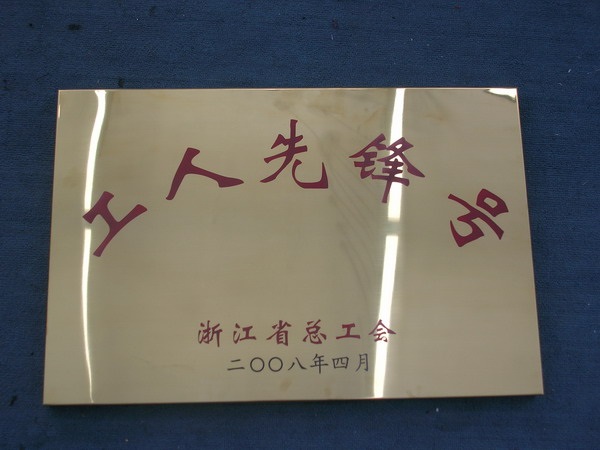 工人先锋号
浙江省总工会
二〇〇八年四月